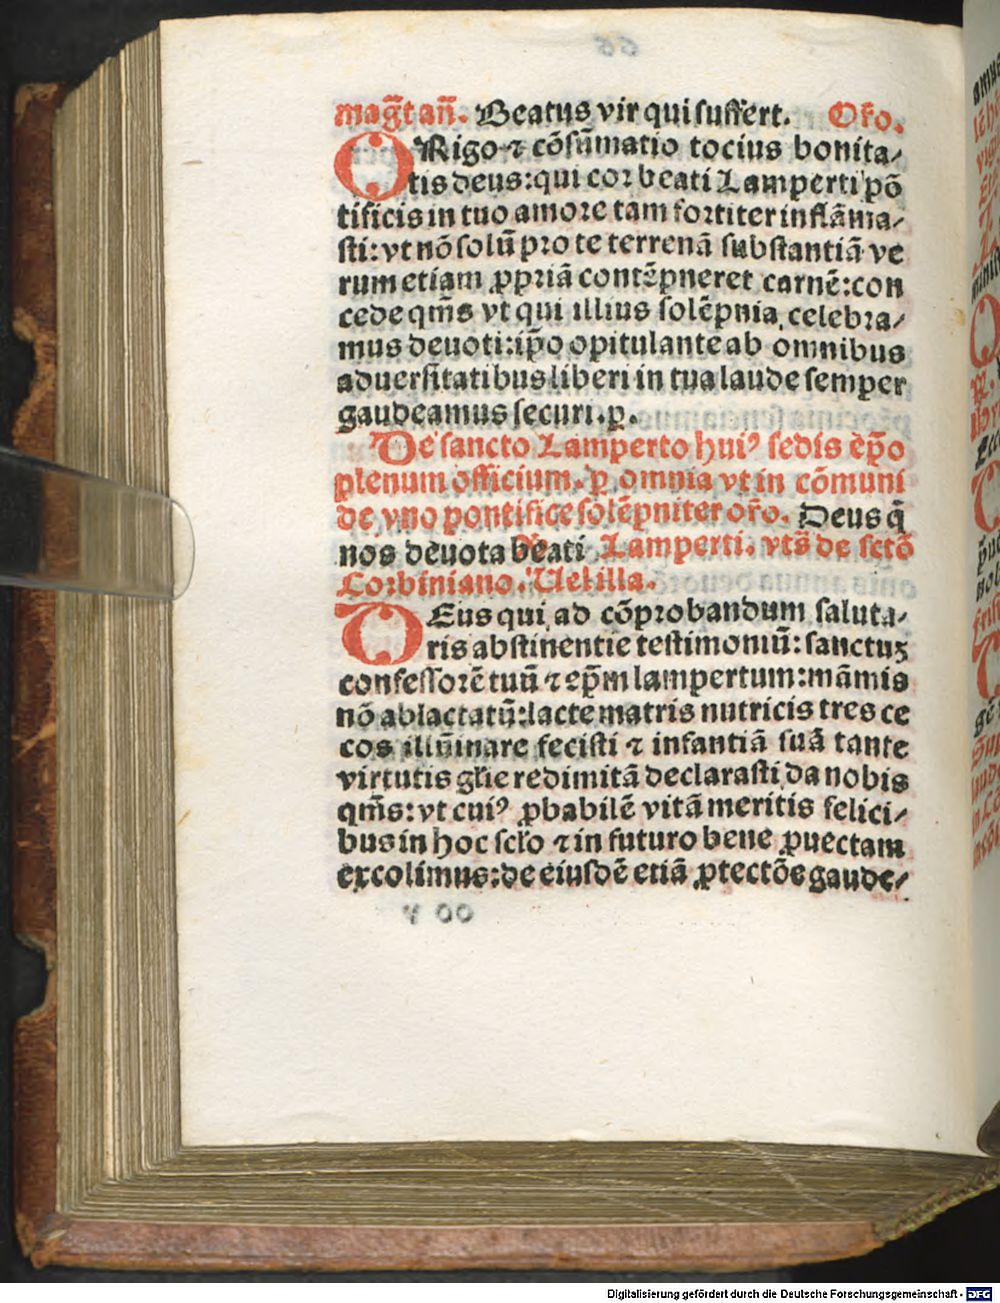 mag̃t an̄. Beatus vir qui suffert. Or̃o.
ORigo ⁊ cōsūmatio tocius bonita⸗
tis deus:qui cor beati Lamperti pō
tificis in tuo amore tam fortiter inflāma⸗
sti:vt nō solū pro te terrenā substantiā ve
rum etiam ꝓpriā contēpneret carnē:con
cede qm̄s vt qui illius solēpnia celebra⸗
mus deuoti:ip̄o opitulante ab omnibus
aduersitatibus liberi in tua laude semper
gaudeamus securi.p̲.
De sancto Lamperto huiꝰ sedis ep̄o
plenum officium. ꝑ omnia vt in cōmuni
de vno pontifice solēpniter or̃o. Deus q̄
nos deuota beati Lamperti. vts̄ de sctō
Corbiniano. Uel illa.
DEus qui ad cōprobandum saluta⸗
ris abstinentie testimoniū: sanctuʒ
confessorē tuū ⁊ ep̄m lampertum:māmis
nō ablactatū:lacte matris nutricis tres ce
cos illūinare fecisti ⁊ infantiā suā tante
virtutis gl̄ie redimitā declarasti da nobis
qm̄s:vt cuiꝰ ꝓbabilē vitā meritis felici⸗
bus in hoc scl̄o ⁊ in futuro bene ꝓuectam
excolimus:de eiusdē etiā ꝓtectōe gaude⸗
Digitalisierung gefördert durch die Deutsche Forschungsgemeinschaft - DFG